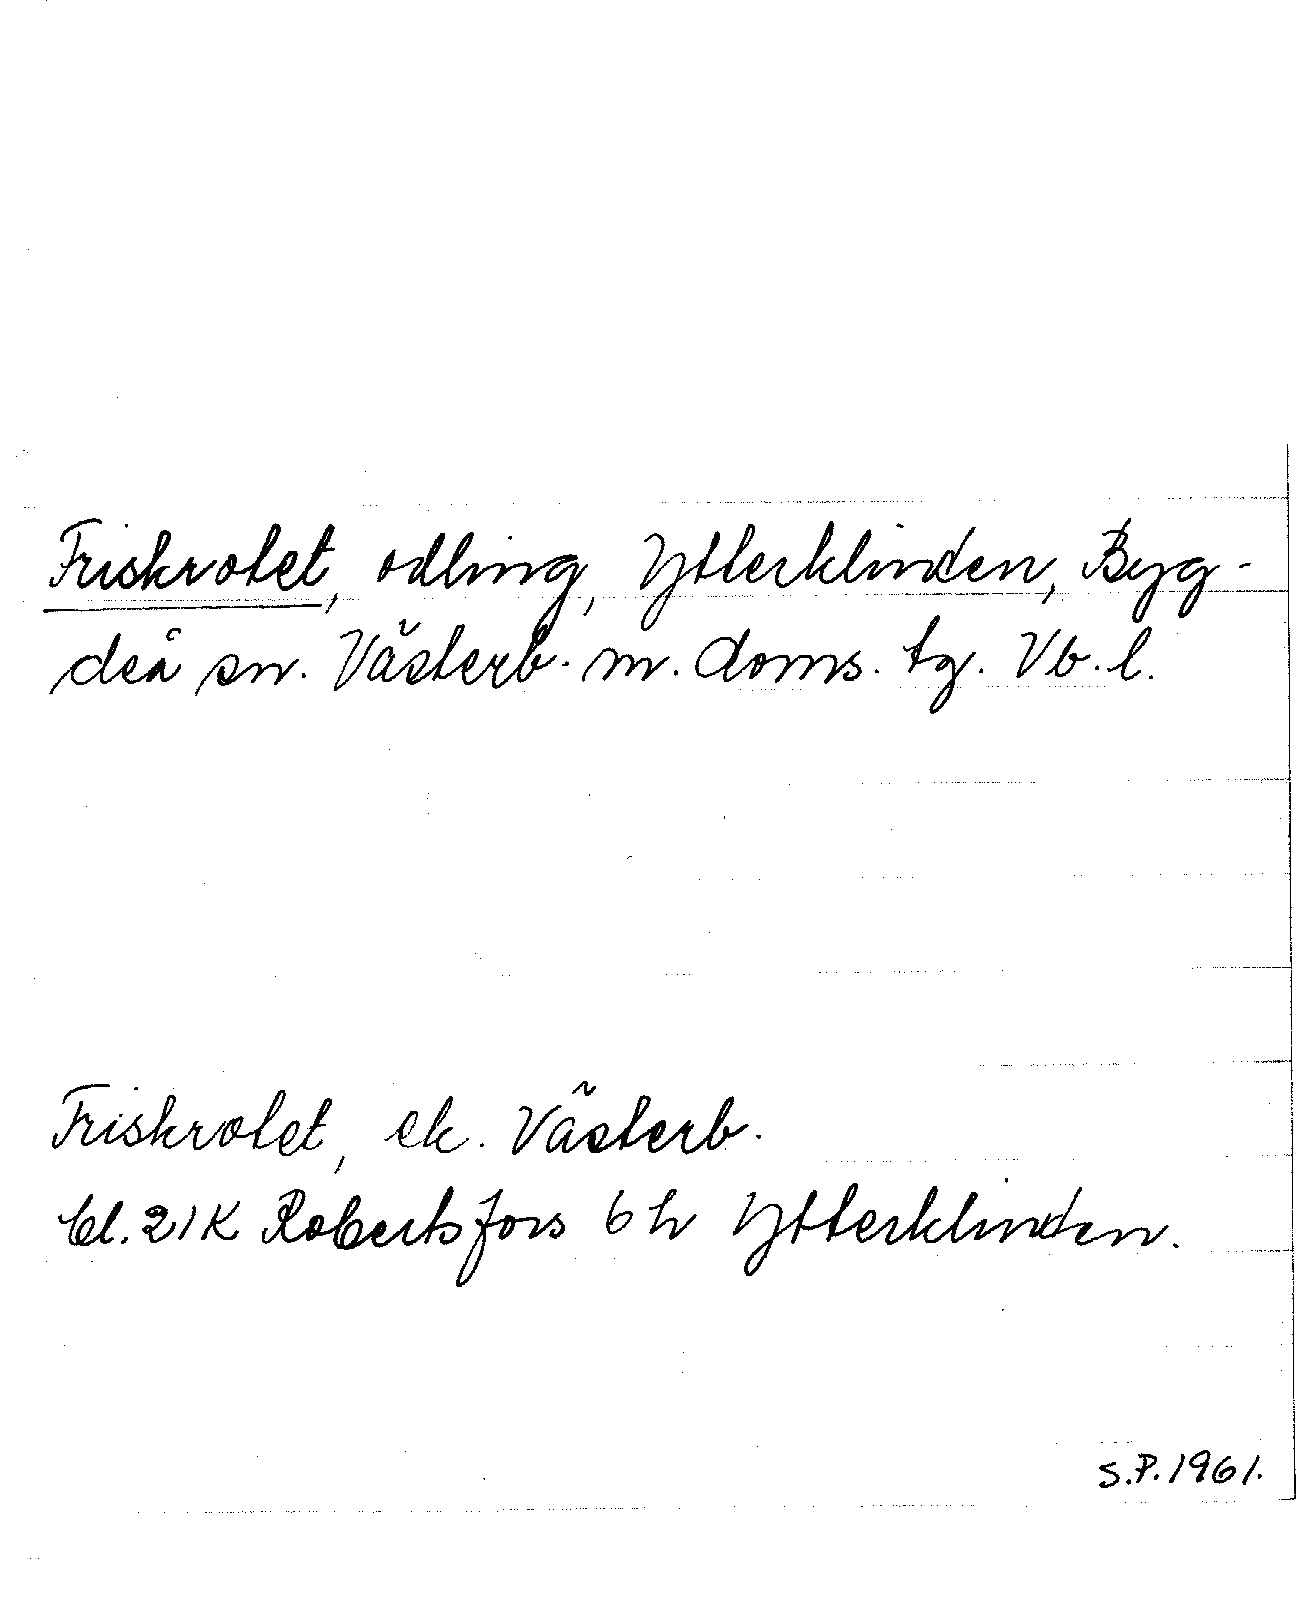 Friskrotet, odling, Ytterklinden, Byg-
deå sn. Västerb. m. doms. tg. Vb. l.
Friskrotet, ek. Västerb.
bl. 21K Robertsfors 6 h Ytterklinden.
S.P. 1961.